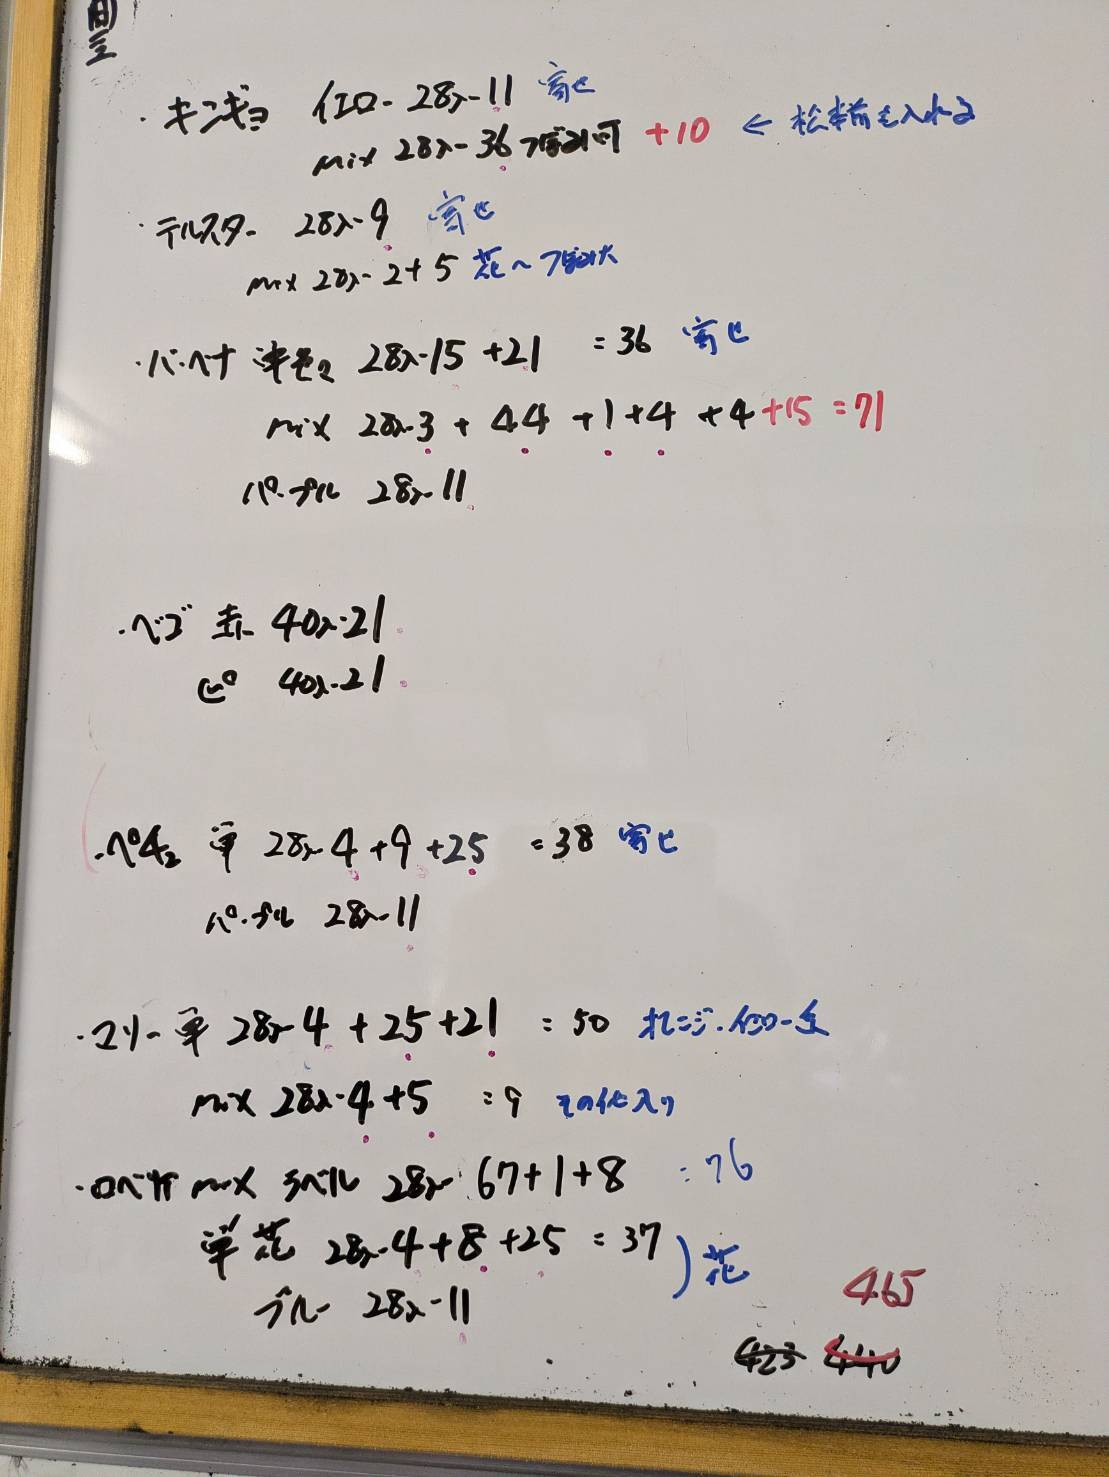 ・キンギョ イエロー 28入-11 寄せ
mix 28入-36 つぼみ可 +10 ← 松本前を入れる
・テルスター 28入-9 寄せ
mix 28入-2+5 花〜つぼみ大
・バーベナ 単色 28入-15 +21 =36 寄せ
mix 28入-3 + 44 +1+4 +4 +15 =71
パープル 28入-11
・ベゴ 赤 40入-21
ピ 40入-21
・ペチュ 単 28入-4 +9 +25 =38 寄せ
パープル 28入-11
・マリー 単 28入-4 +25+21 =50 オレンジ・イエロー
mix 28入-4 +5 =9 その他入り
・ロベリア mix ラベル 28入-67+1+8 =76
単 花 28入-4+8 +25 =37 ) 花
ブルー 28入-11
465
423 440